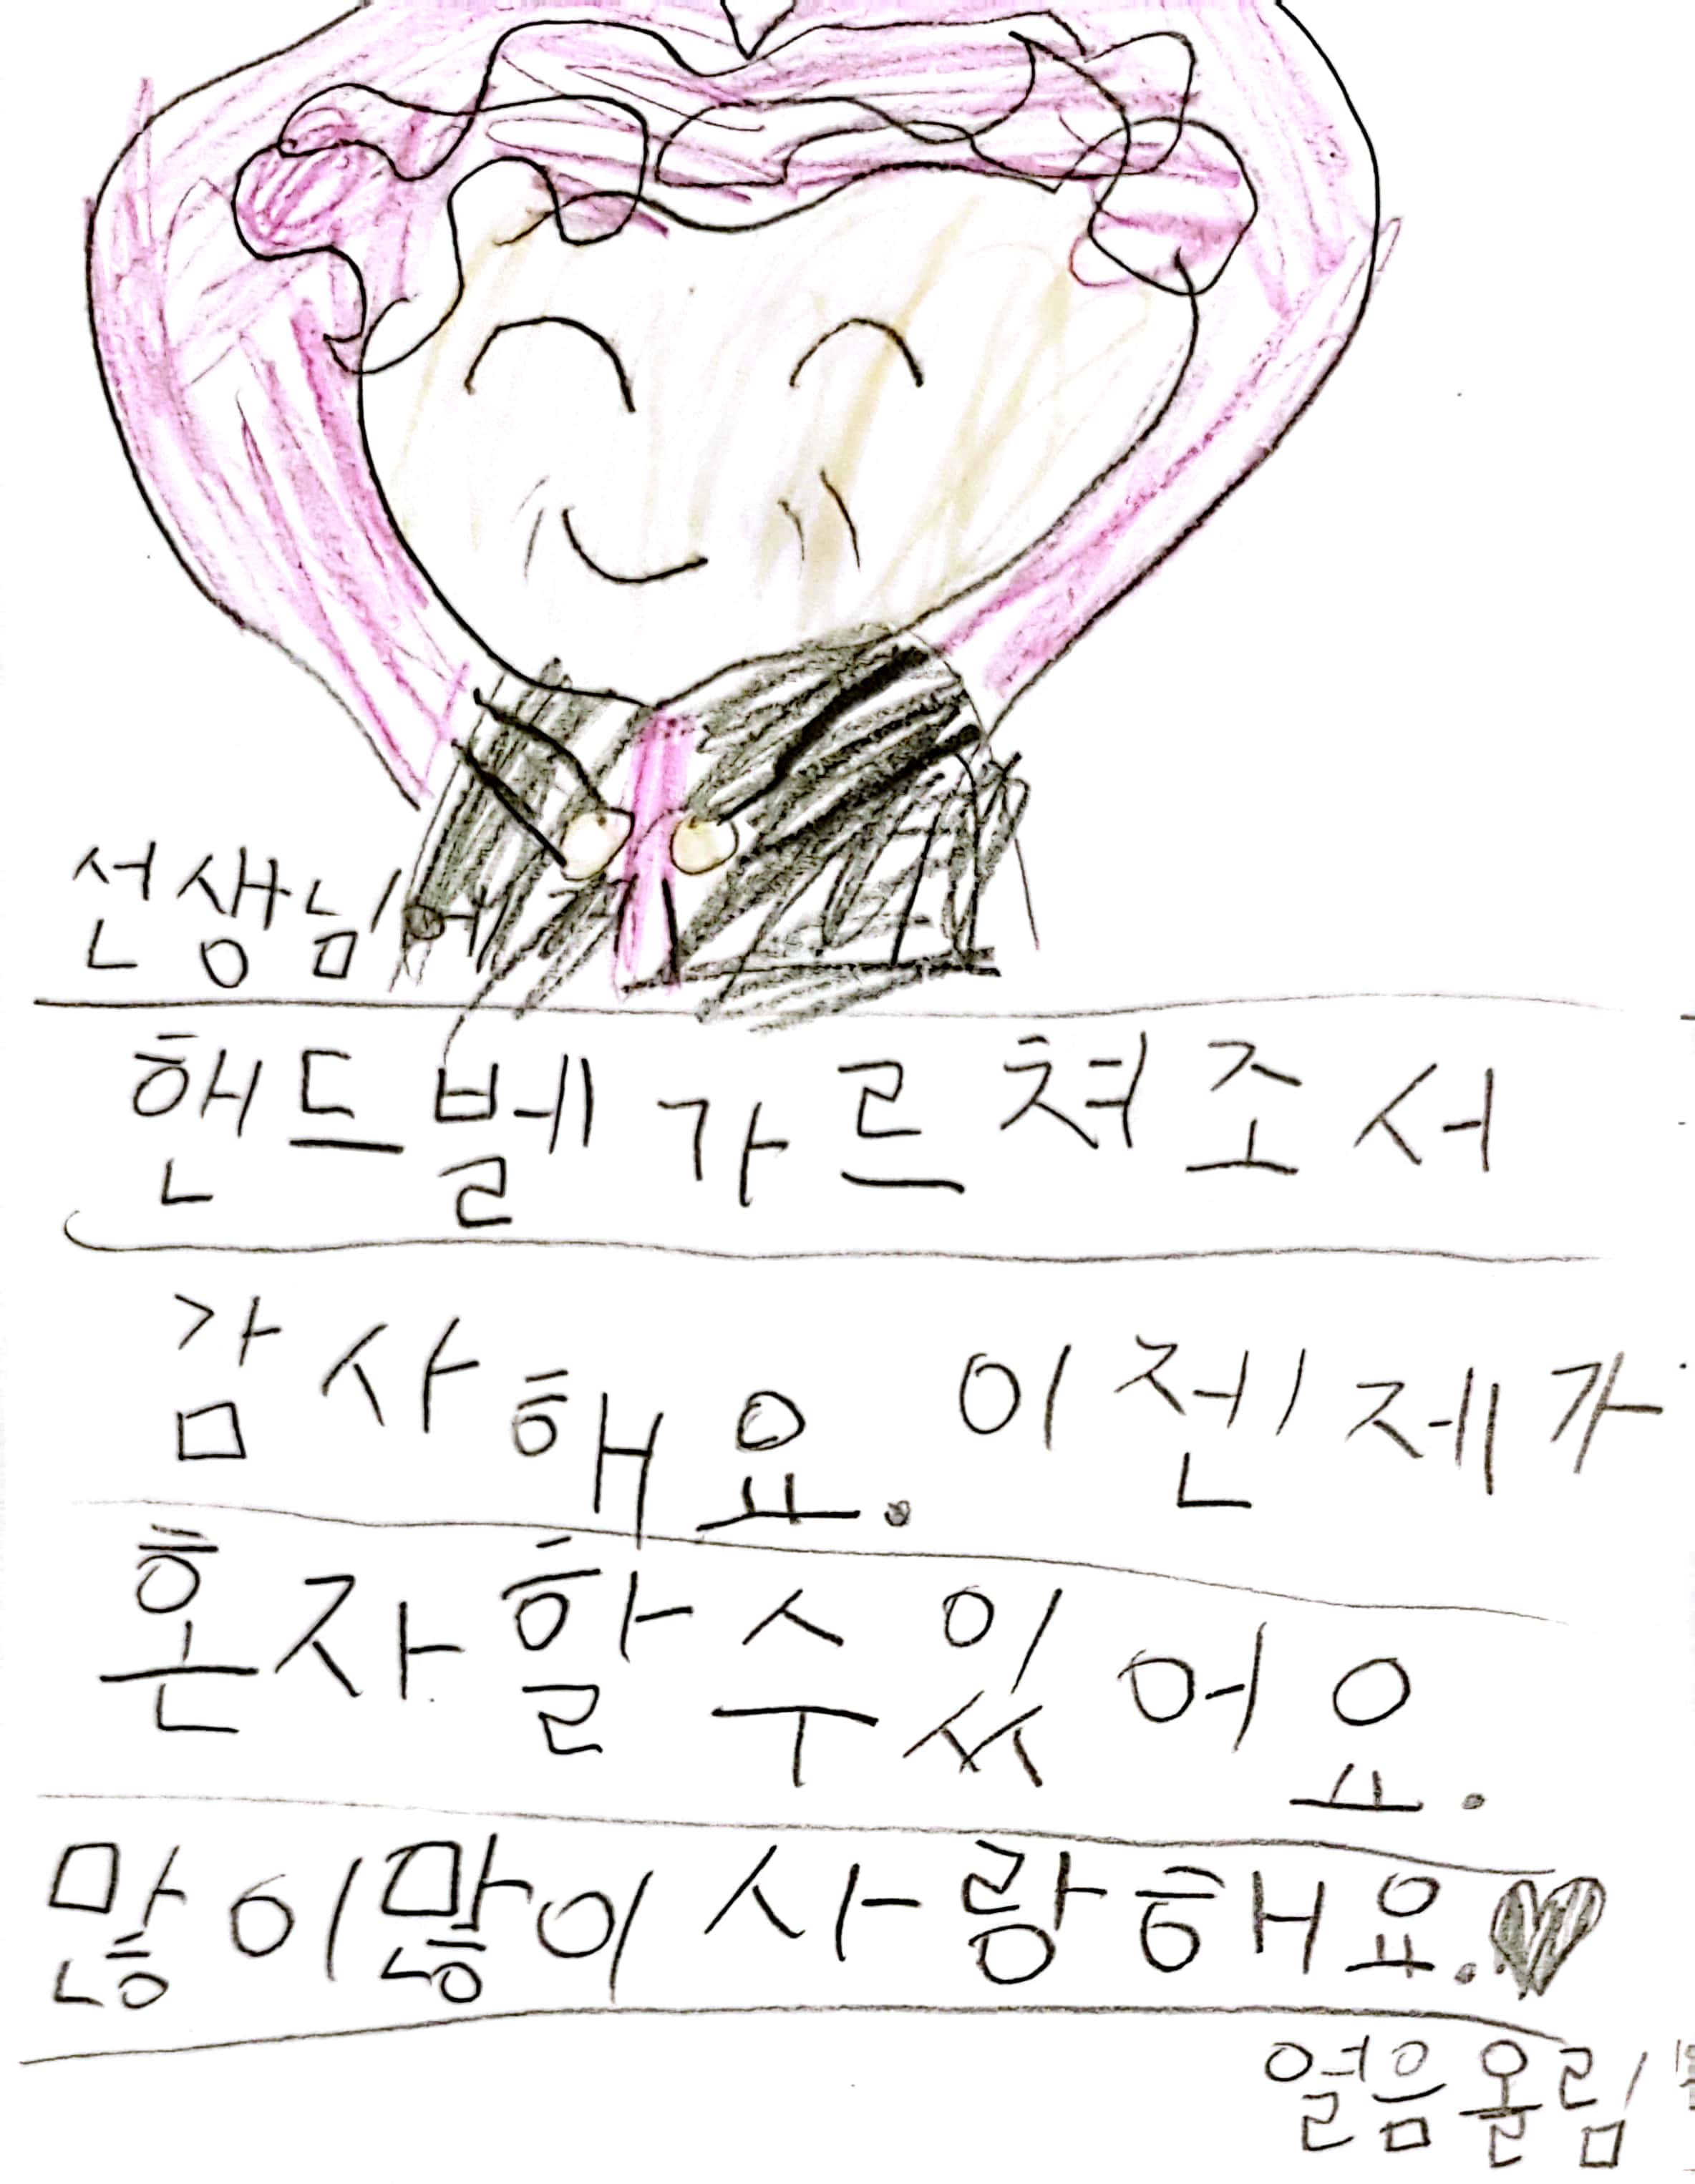 선생님
핸드벨 가르쳐조서
감사해요. 이젠 제가
혼자 할 수 있어요.
많이많이 사랑해요.
열음올림